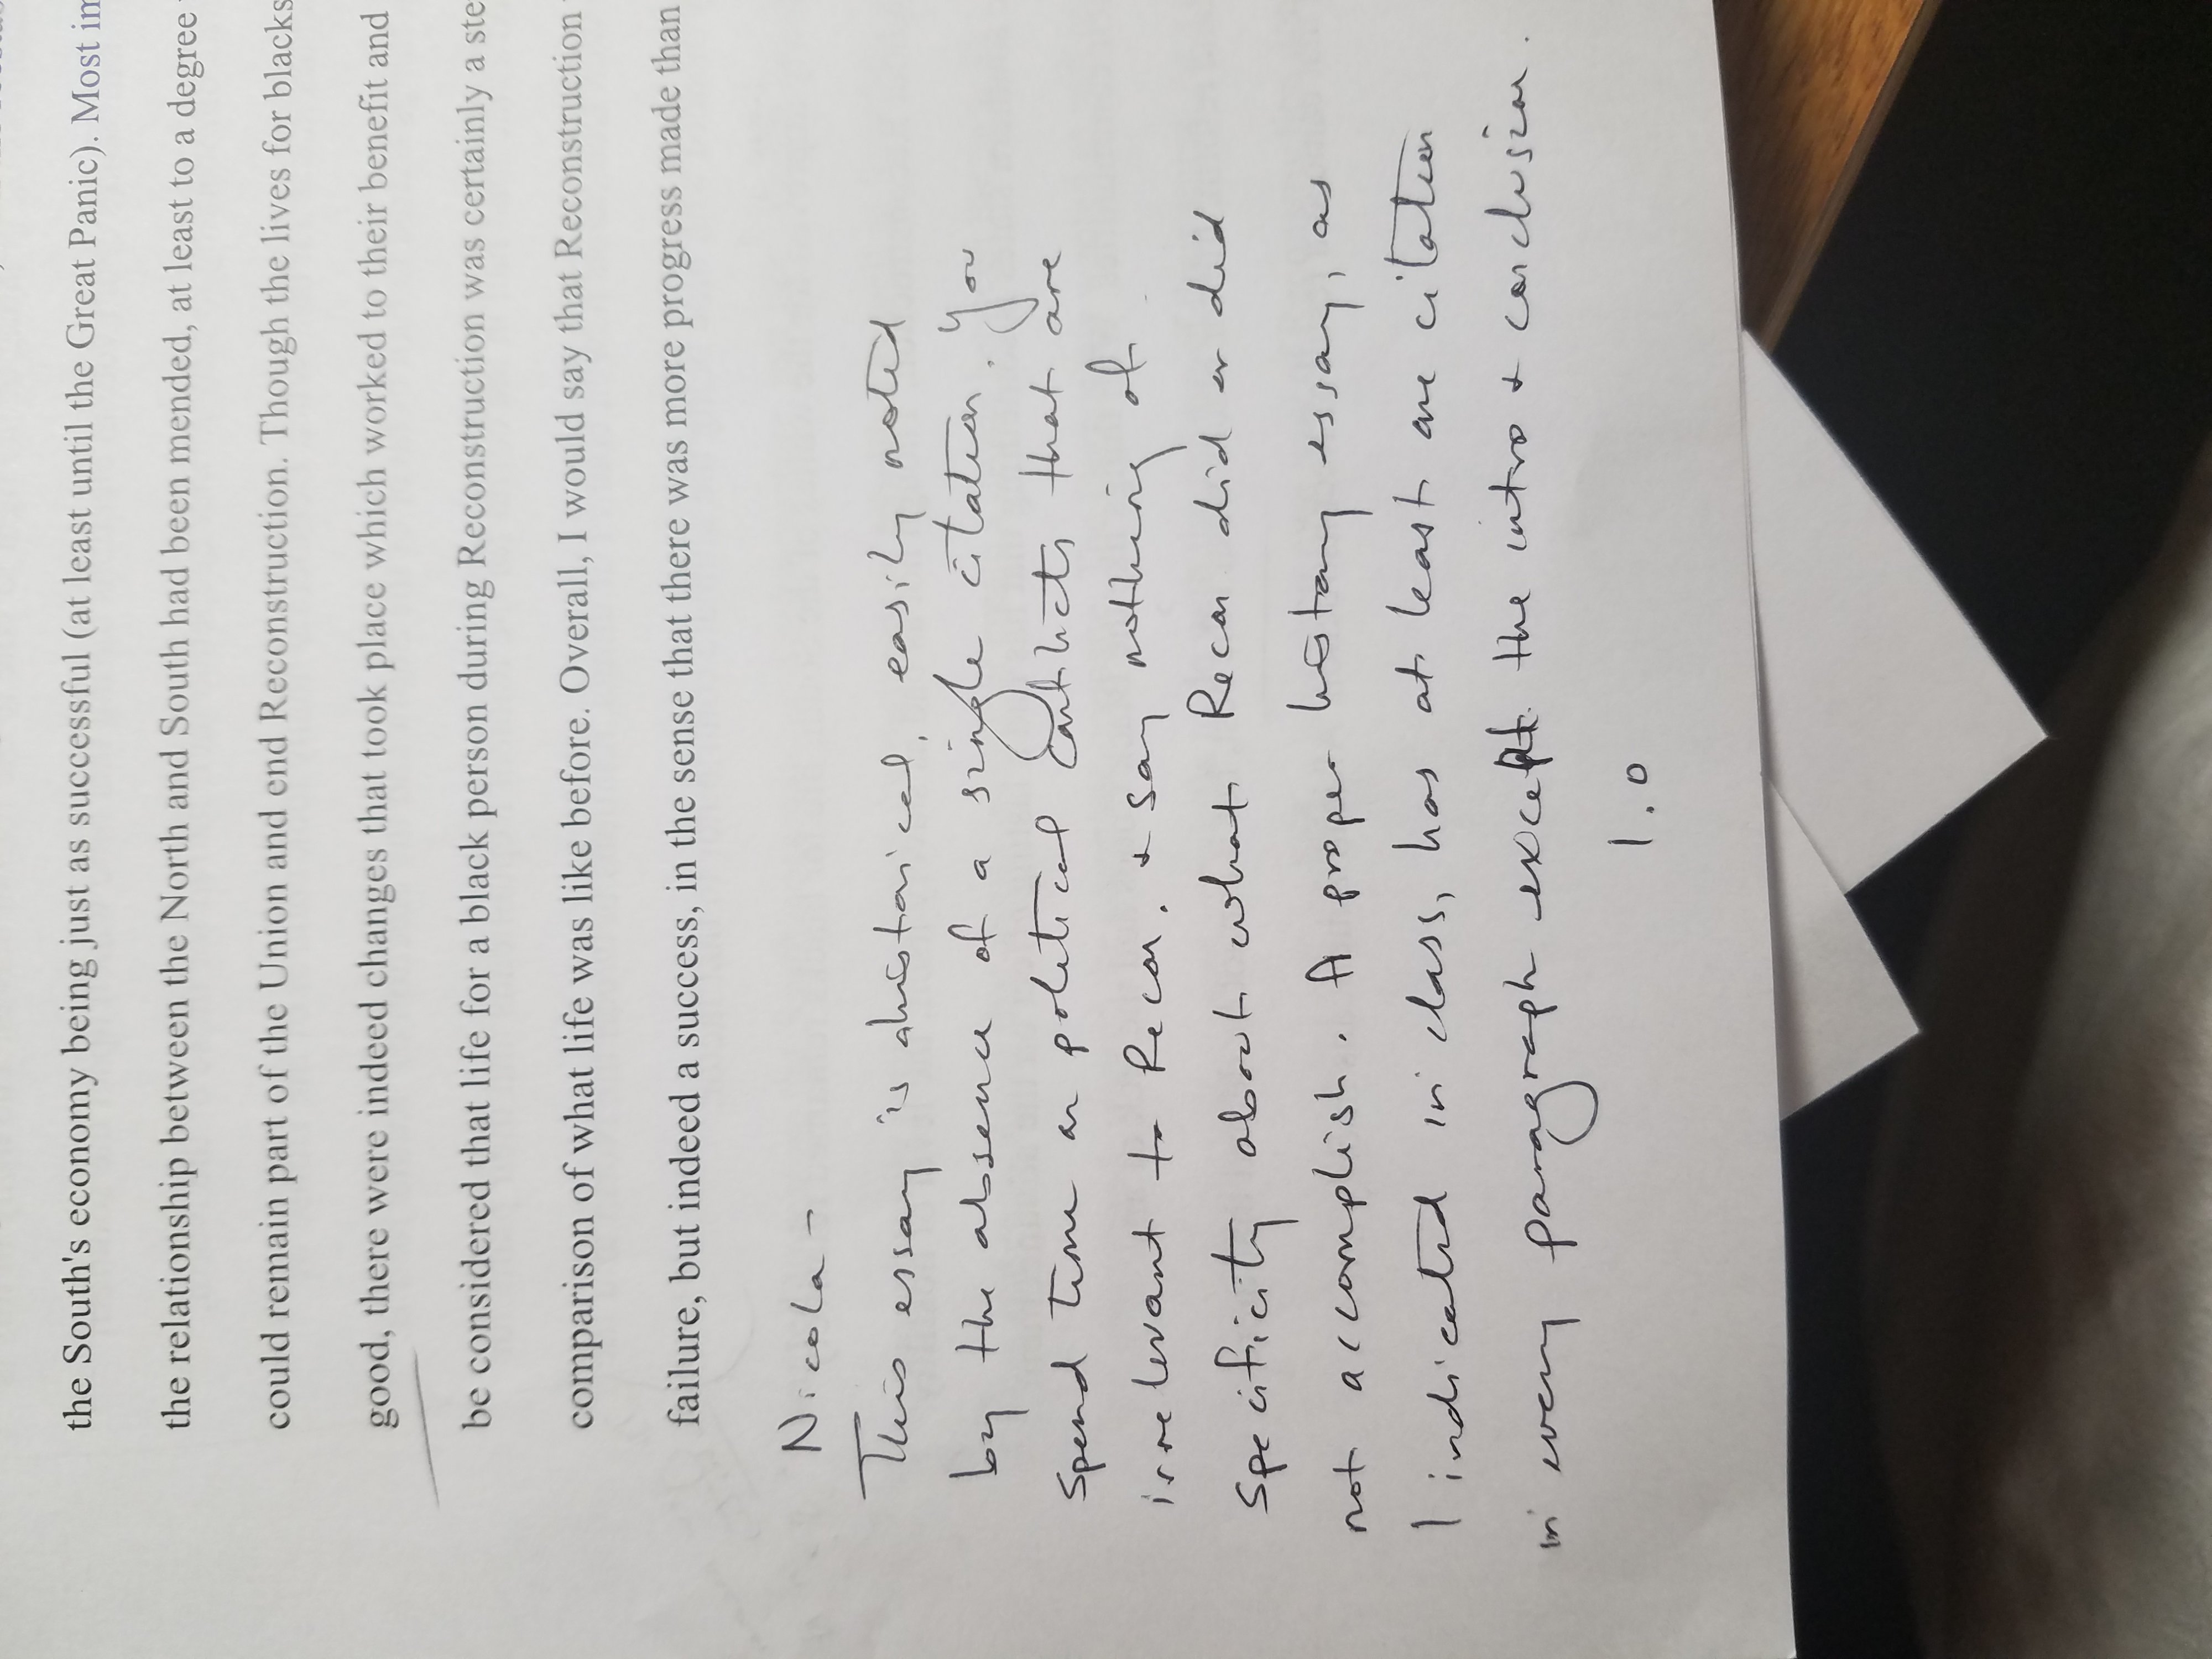 the South's economy being just as successful (at least until the Great Panic). Most im
the relationship between the North and South had been mended, at least to a degree
could remain part of the Union and end Reconstruction. Though the lives for blacks
good, there were indeed changes that took place which worked to their benefit and
be considered that life for a black person during Reconstruction was certainly a ste
comparison of what life was like before. Overall, I would say that Reconstruction
failure, but indeed a success, in the sense that there was more progress made than
Nicola –
This essay is ahistorical, easily noted
by the absence of a single citation. You
spend time on political conflicts that are
irrelevant to Recon. + say nothing of
specificity about what Recon did or did
not accomplish. A proper history essay, as
I indicated in class, has at least one citation
in every paragraph except the intro + conclusion.
1.0